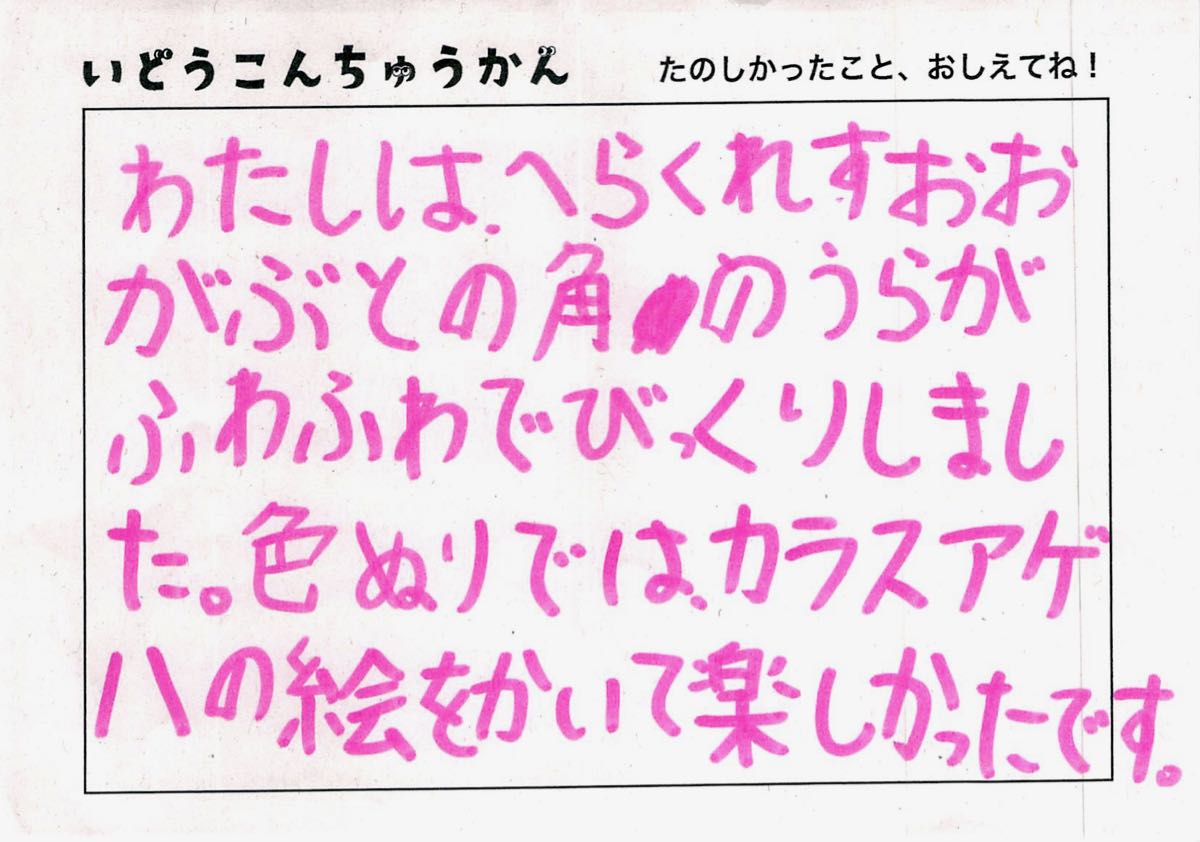 いどうこんちゅうかん
たのしかったこと、おしえてね!
わたしは、へらくれすおお
がぶとの角のうらが
ふわふわでびっくりしまし
た。色ぬりでは、カラスアゲ
ハの絵をかいて楽しかったです。